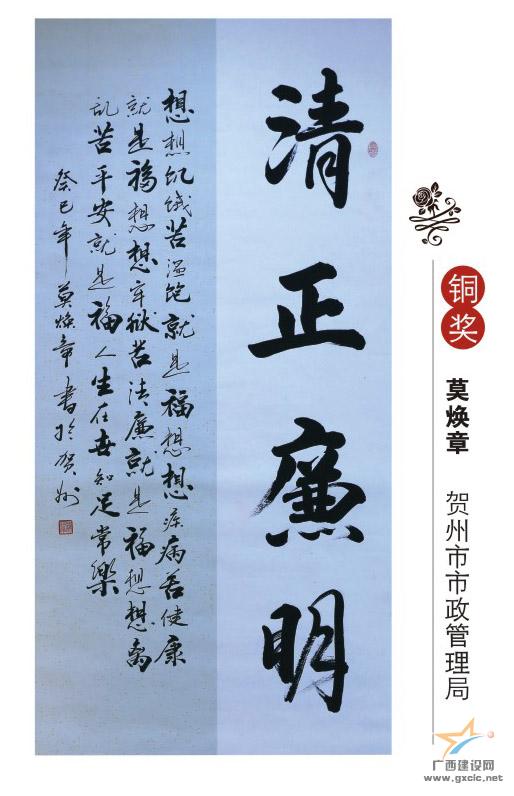 清正廉明
想想饥饿苦温饱就是福想想疾病苦健康
就是福想想牢狱苦清廉就是福想想离
乱苦平安就是福人生在世知足常樂
癸巳年莫焕章书於贺州
铜奖
莫焕章
贺州市市政管理局
广西建设网
www.gxcic.net